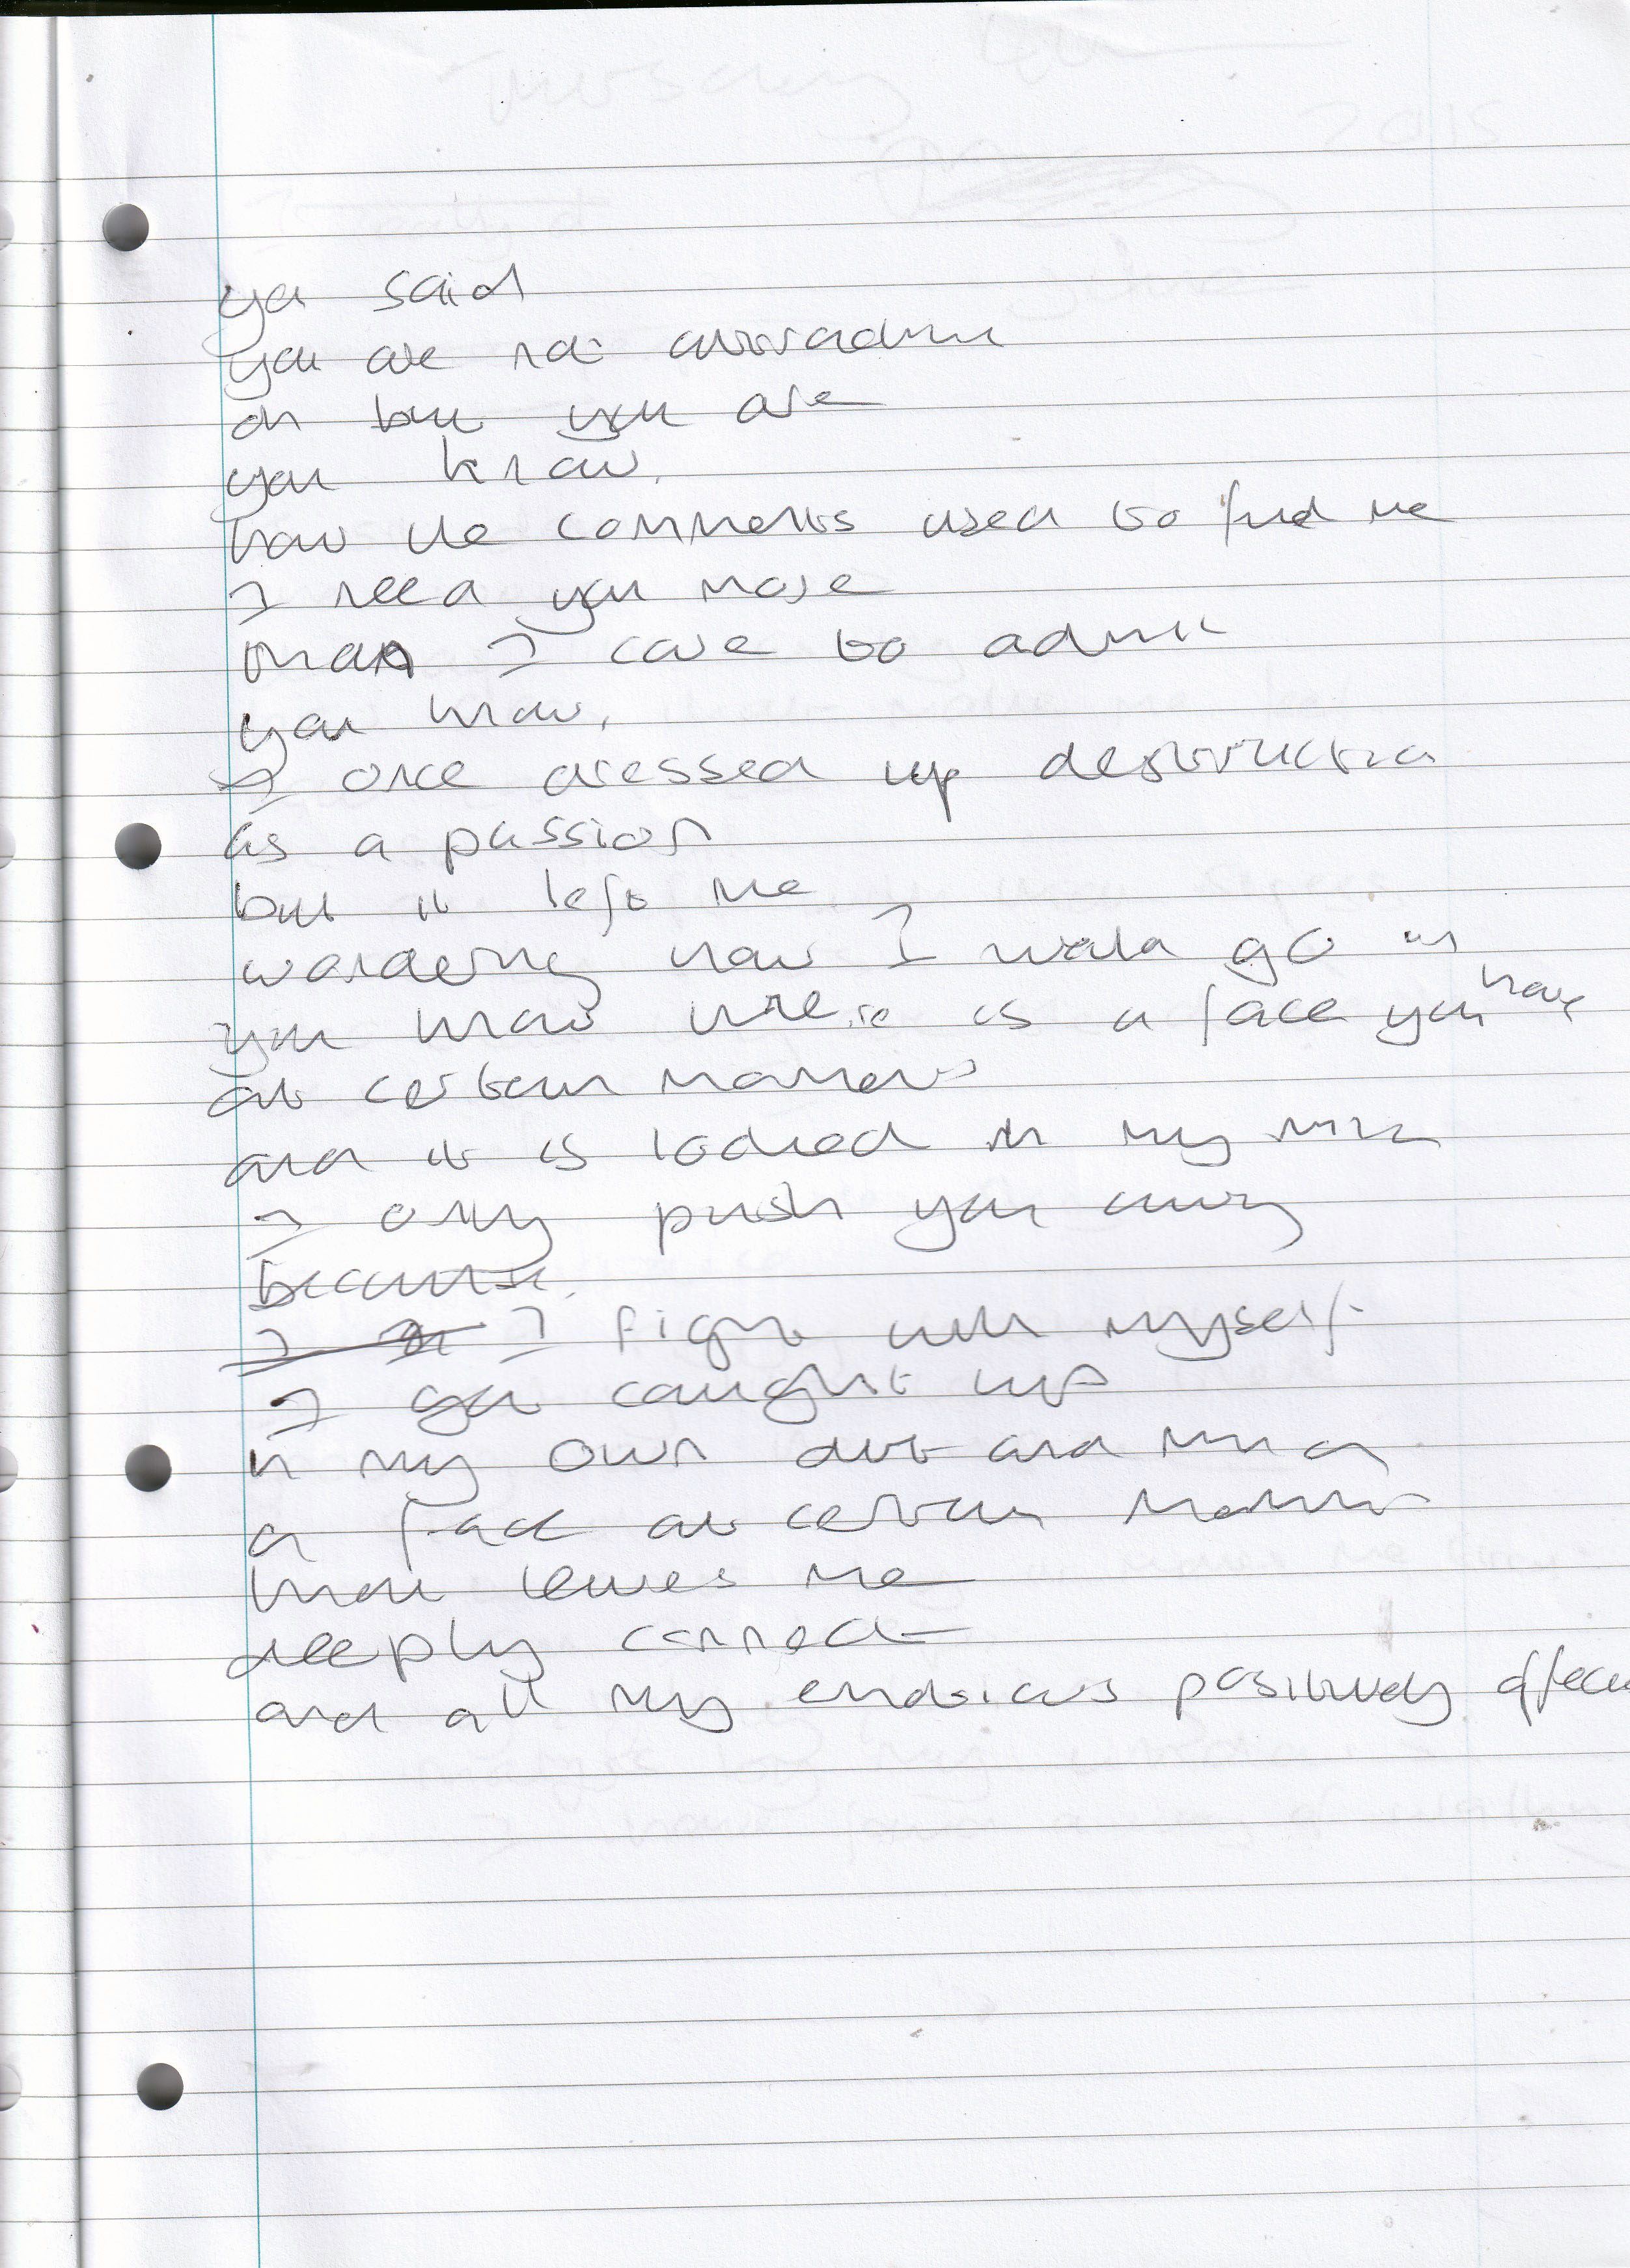 you said
you are not
oh but you are
you know,
how the comments used to find me
I need you more
than I care to admit
you know,
I once dressed up destruction
as a passion
but it left me
wondering how I would go on
you know there is a face you have
at certain moments
and it is locked in my
I only push you away
because
I fight with myself
I get caught up
in my own and
a face at certain moments
that leaves me
deeply connect
and all my emotions positively affect